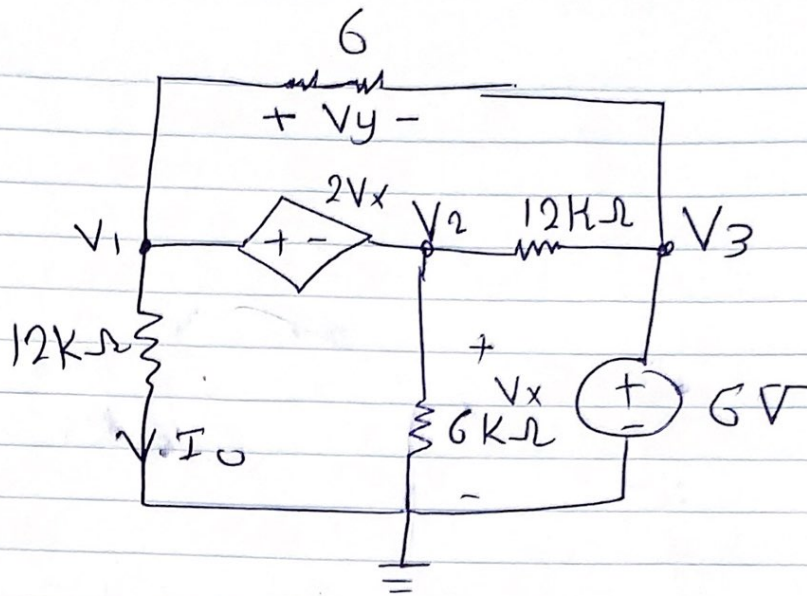 6
+ Vy -
2Vx
V1
+ -
V2
12KΩ
V3
12KΩ
Io
+
Vx
-
6KΩ
+
-
6V